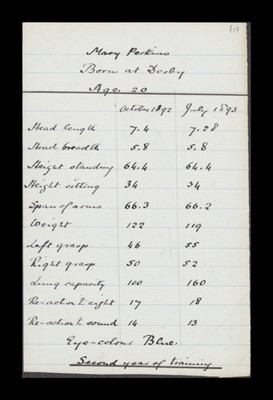 Mary Perkins
Born at Derby
Age. 20
October 1892 July 1893
Head length 7.4 7.28
Head breadth 5.8 5.8
Height standing 64.4 64.4
Height sitting 34 34
Span of arms 66.3 66.2
Weight 122 119
Left grasp 46 55
Right grasp 50 52
Lung capacity 100 160
Re-action to sight 17 18
Re-action to sound 14 13
Eye-colour Blue.
Second year of training